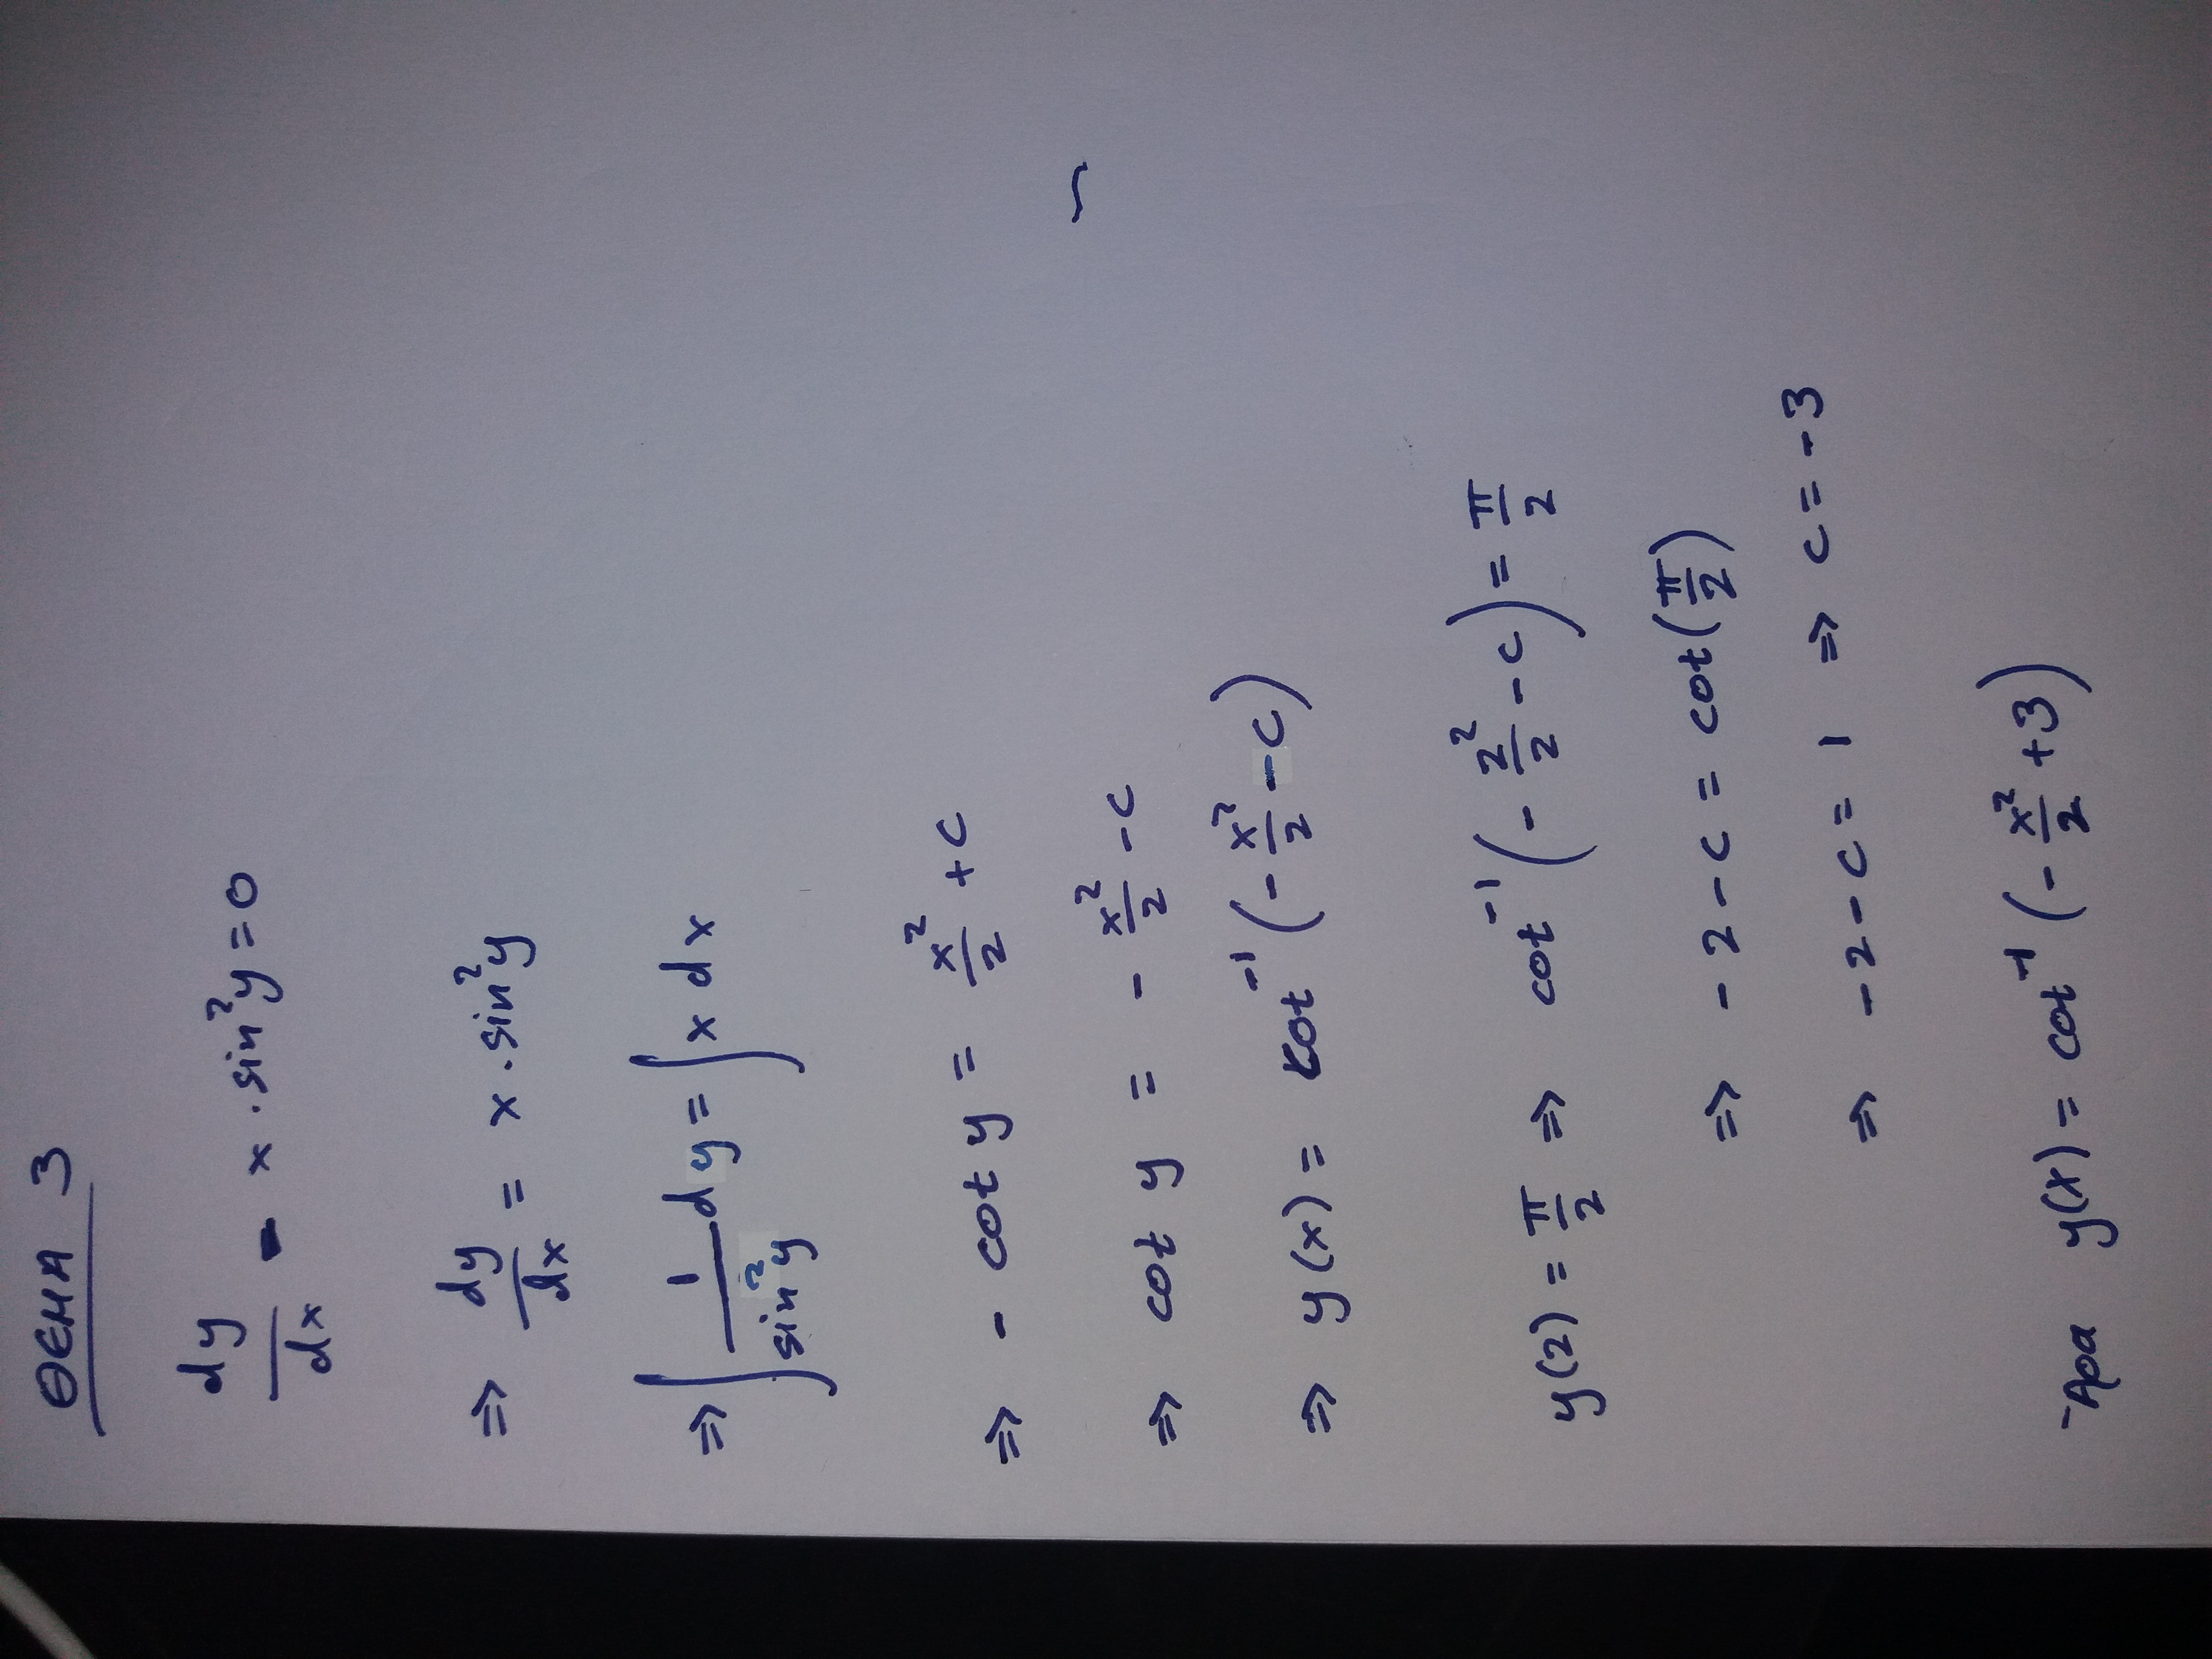 ΘΕΜΑ 3
dy/dx - x · sin²y = 0
⇒ dy/dx = x · sin²y
⇒ ∫ 1/sin²y dy = ∫ x dx
⇒ - cot y = x²/2 + c
⇒ cot y = - x²/2 - c
⇒ y(x) = cot⁻¹(- x²/2 - c)
y(2) = π/2 ⇒ cot⁻¹(- 2²/2 - c) = π/2
⇒ - 2 - c = cot(π/2)
⇒ - 2 - c = 1 ⇒ c = - 3
Άρα y(x) = cot⁻¹(- x²/2 + 3)